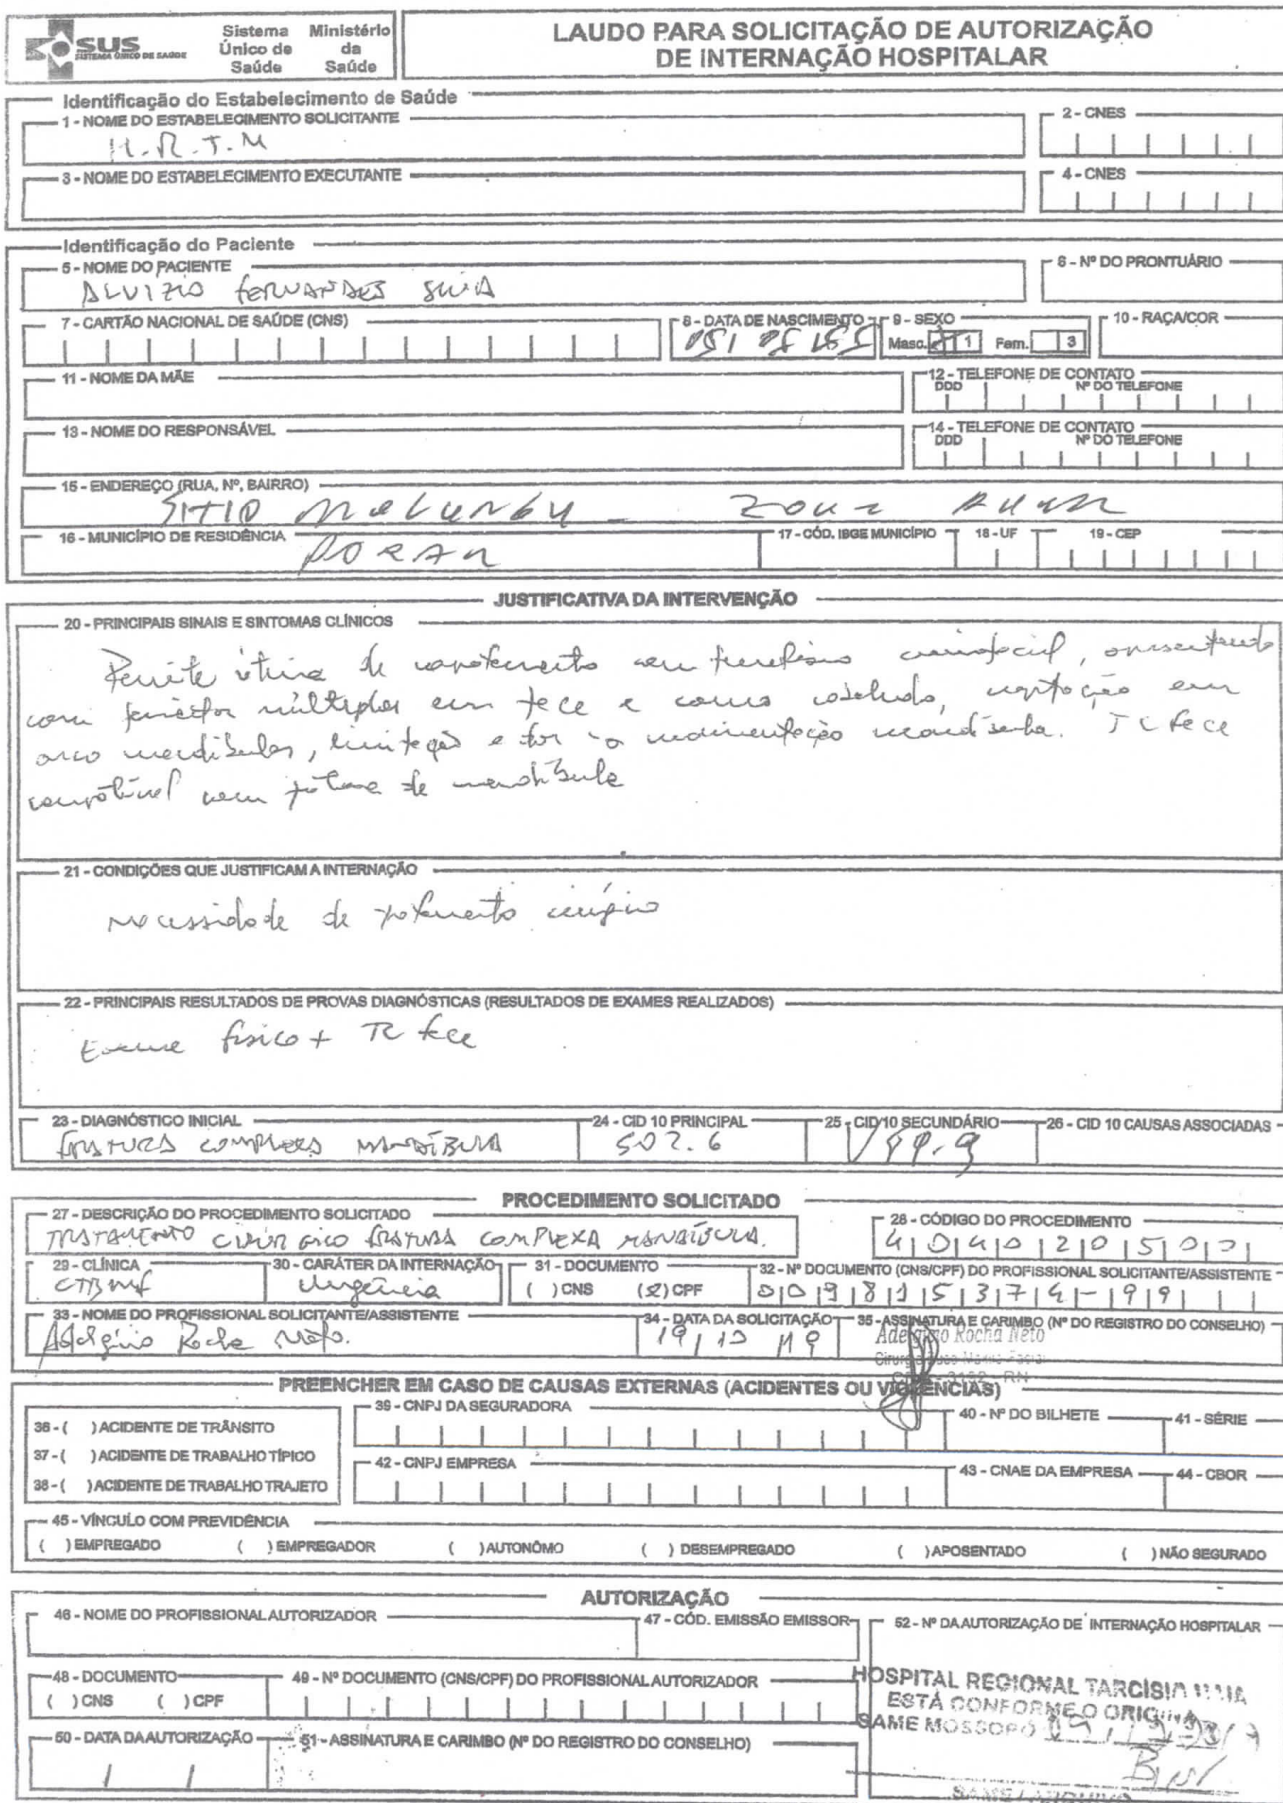 SUS
SISTEMA ÚNICO DE SAÚDE
Sistema Único de Saúde
Ministério da Saúde
LAUDO PARA SOLICITAÇÃO DE AUTORIZAÇÃO
DE INTERNAÇÃO HOSPITALAR
Identificação do Estabelecimento de Saúde
1 - NOME DO ESTABELECIMENTO SOLICITANTE
H.R.T.M
2 - CNES
3 - NOME DO ESTABELECIMENTO EXECUTANTE
4 - CNES
Identificação do Paciente
5 - NOME DO PACIENTE
ALVIZIO FERNANDES SILVA
6 - Nº DO PRONTUÁRIO
7 - CARTÃO NACIONAL DE SAÚDE (CNS)
8 - DATA DE NASCIMENTO
9 - SEXO
Masc. 1 Fem. 3
10 - RAÇA/COR
11 - NOME DA MÃE
12 - TELEFONE DE CONTATO
DDD Nº DO TELEFONE
13 - NOME DO RESPONSÁVEL
14 - TELEFONE DE CONTATO
DDD Nº DO TELEFONE
15 - ENDEREÇO (RUA, Nº, BAIRRO)
SITIO MULUNGU - ZONA
16 - MUNICÍPIO DE RESIDÊNCIA
17 - CÓD. IBGE MUNICÍPIO
18 - UF
19 - CEP
JUSTIFICATIVA DA INTERVENÇÃO
20 - PRINCIPAIS SINAIS E SINTOMAS CLÍNICOS
vítima de capotamento com craniofacial, apresentando
com múltiplas em face e couro cabeludo, crepitação em
arco mandibular, limitação e dor a movimentação mandibular. TC face
compatível com fratura de mandíbula
21 - CONDIÇÕES QUE JUSTIFICAM A INTERNAÇÃO
Necessidade de tratamento cirúrgico
22 - PRINCIPAIS RESULTADOS DE PROVAS DIAGNÓSTICAS (RESULTADOS DE EXAMES REALIZADOS)
Exame físico + TC face
23 - DIAGNÓSTICO INICIAL
FRATURA COMPLEXA MANDÍBULA
24 - CID 10 PRINCIPAL
S02.6
25 - CID 10 SECUNDÁRIO
26 - CID 10 CAUSAS ASSOCIADAS
PROCEDIMENTO SOLICITADO
27 - DESCRIÇÃO DO PROCEDIMENTO SOLICITADO
TRATAMENTO CIRÚRGICO FRATURA COMPLEXA MANDÍBULA.
28 - CÓDIGO DO PROCEDIMENTO
29 - CLÍNICA
CTBMF
30 - CARÁTER DA INTERNAÇÃO
Urgência
31 - DOCUMENTO
( ) CNS (x) CPF
32 - Nº DOCUMENTO (CNS/CPF) DO PROFISSIONAL SOLICITANTE/ASSISTENTE
00981537 4-99
33 - NOME DO PROFISSIONAL SOLICITANTE/ASSISTENTE
Adelgino Rocha Neto.
34 - DATA DA SOLICITAÇÃO
35 - ASSINATURA E CARIMBO (Nº DO REGISTRO DO CONSELHO)
Adelgino Rocha Neto
PREENCHER EM CASO DE CAUSAS EXTERNAS (ACIDENTES OU VIOLÊNCIAS)
36 - ( ) ACIDENTE DE TRÂNSITO
37 - ( ) ACIDENTE DE TRABALHO TÍPICO
38 - ( ) ACIDENTE DE TRABALHO TRAJETO
39 - CNPJ DA SEGURADORA
40 - Nº DO BILHETE
41 - SÉRIE
42 - CNPJ EMPRESA
43 - CNAE DA EMPRESA
44 - CBOR
45 - VÍNCULO COM PREVIDÊNCIA
( ) EMPREGADO ( ) EMPREGADOR ( ) AUTONÔMO ( ) DESEMPREGADO ( ) APOSENTADO ( ) NÃO SEGURADO
AUTORIZAÇÃO
46 - NOME DO PROFISSIONAL AUTORIZADOR
47 - CÓD. EMISSÃO EMISSOR
52 - Nº DA AUTORIZAÇÃO DE INTERNAÇÃO HOSPITALAR
48 - DOCUMENTO
( ) CNS ( ) CPF
49 - Nº DOCUMENTO (CNS/CPF) DO PROFISSIONAL AUTORIZADOR
HOSPITAL REGIONAL TARCÍSIO MAIA
ESTÁ CONFORME O ORIGINAL
SAME MOSSORÓ
50 - DATA DA AUTORIZAÇÃO
51 - ASSINATURA E CARIMBO (Nº DO REGISTRO DO CONSELHO)
SAME / ARQUIVO